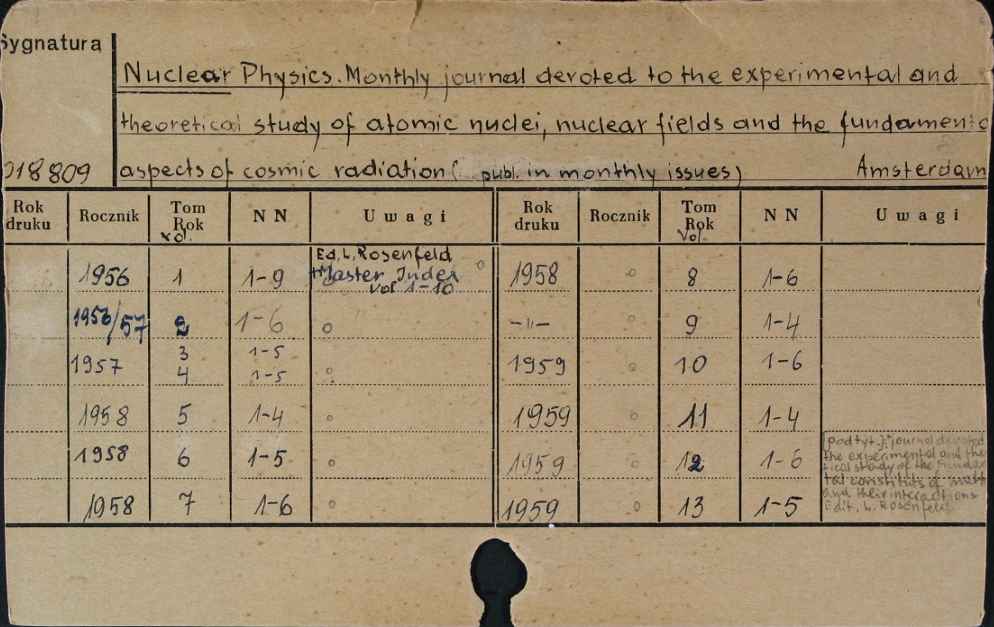 Sygnatura
Nuclear Physics. Monthly journal devoted to the experimental and
theoretical study of atomic nuclei, nuclear fields and the fundament
018809 aspects of cosmic radiation ( publ. in monthly issues) Amsterdam
Rok druku Rocznik Tom Rok vol. NN Uwagi Rok druku Rocznik Tom Rok Vol. NN Uwagi
Ed. L. Rosenfeld
1956 1 1-9 Master Index vol 1-10 1958 8 1-6
1956/57 2 1-6 -"- 9 1-4
1957 3 1-5 1959 10 1-6
4 1-5
1958 5 1-4 1959 11 1-4
1958 6 1-5 1959 12 1-6
1958 7 1-6 1959 13 1-5
[podtyt.]: journal devoted
the experimental and the
tical study of the fundam
tal constitts of matt
and their interactions
Edit. L. Rosenfeld